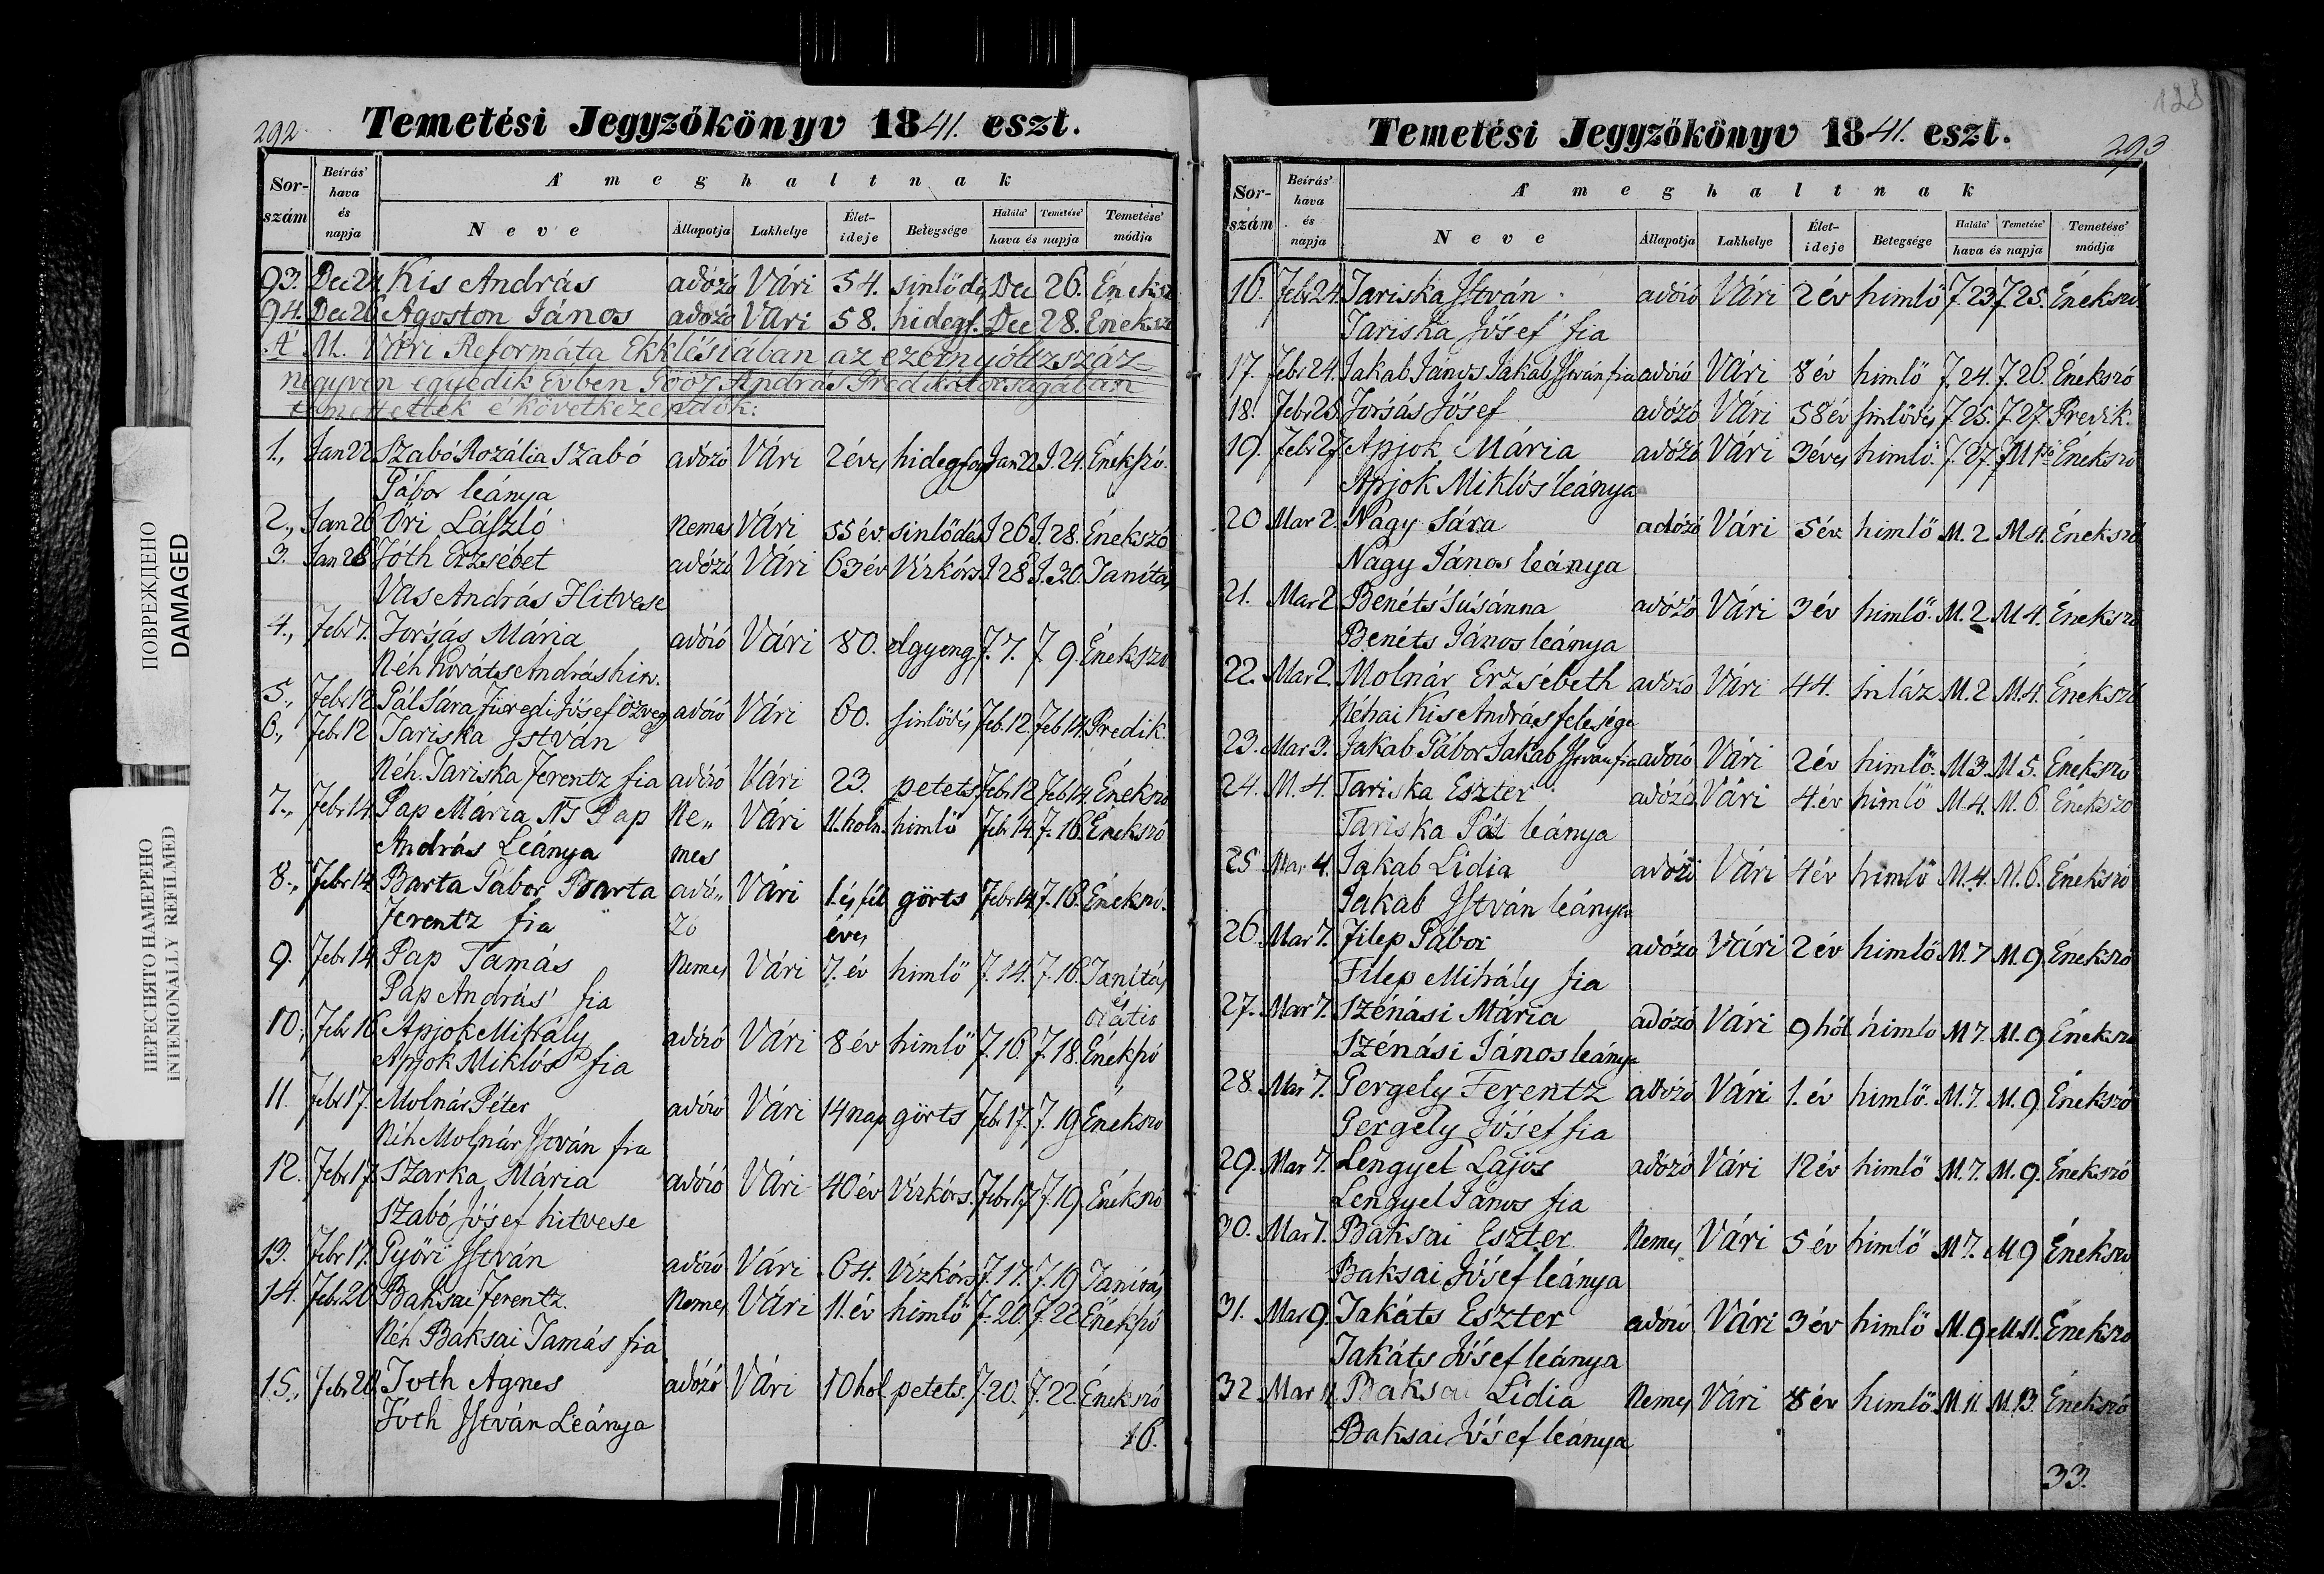 ПОВРЕЖДЕНО
DAMAGED
ПЕРЕСНЯТО НАМЕРЕНО
INTENIONALLY REFILMED
292
Temetési Jegyzőkönyv 1841. eszt.
Sor-szám
Beírás' hava és napja
A' meghaltnak
Neve
Állapotja
Lakhelye
Élet-ideje
Betegsége
Halála' Temetése'
hava és napja
Temetése' módja
93. Dec 24. Kis András adózó Vári 54. sinlődés Dec 26. Éneksz
94. Dec 26 Agoston János adózó Vári 58. hidegf. Dec 28. Éneksz
A' M. Vári Reformáta Ekklésiában az ezernyóltzszáz
negyven egyedik Évben Soóz András Prédikátorságában
temettettek e' következendők:
1., Jan 22 Szabó Rozália Szabó adózó Vári 2 éves hidegség Jan 22 J. 24. Énekszó.
Gábor leánya
2., Jan 26 Őri László Nemes Vári 55 év. sinlődés J 26 J. 28. Énekszó
3. Jan 28 Tóth Erzsébet adózó Vári 63 év Vízkórs. J 28 J. 30. Tanítás
Vas András Hitvese
4., Febr 7. Forsás Mária adózó Vári 80. elgyeng F. 7. F 9. Énekszó
Néh Kováts András hitv.
5., Febr 12 Pál Sára Füredi Jósef özvegy adózó Vári 60. sinlődés Feb. 12. Feb 14. Predik.
6., Febr 12 Tariska István
Néh. Tariska Ferentz fia adózó Vári 23. petets Febr 12 Feb 14. Énekszó
7., Febr 14. Pap Mária NS Pap Ne,, Vári 11. holn. himlő Febr 14. F. 16. Énekszó
András Leánya mes
8., Febr 14 Barta Gábor Barta adó,, Vári 1. és fél görts Febr 14. F. 16. Énekszó.
Ferentz fia zó éves
9. Febr 14 Pap Tamás Nemes Vári 7. év himlő F. 14. F. 16. Tanítás
Pap András' fia és oratio
10., Febr 16 Apjok Mihály adózó Vári 8 év himlő F. 16. F. 18. Énekszó
Apjok Miklós fia
11. Febr 17. Molnár Péter adózó Vári 14 nap görts Feb 17. F. 19 Énekszó
Néh Molnár István fia
12. Febr 17 Szarka Mária adózó Vári 40 év Vízkórs. Febr 17 F. 19. Énekszó
Szabó Jósef hitvese
13. Febr 17. Győri István adózó Vári 64. Vízkórs F. 17. F. 19 Tanítás
14. Feb. 20 Baksai Ferentz. Nemes Vári 11. év himlő F. 20. F. 22 Énekszó
Néh Baksai Tamás fia
15., Febr 20. Tóth Agnes adózó Vári 10 hol petets. F 20. F. 22. Énekszó
Tóth István Leánya
16.
128
293
Temetési Jegyzőkönyv 1841. eszt.
Sor-szám
Beírás' hava és napja
A' meghaltnak
Neve
Állapotja
Lakhelye
Élet-ideje
Betegsége
Halála' Temetése'
hava és napja
Temetése' módja
16. Febr 24. Tariska István adózó Vári 2 év himlő F. 23 F 25. Énekszó
Tariska Jósef fia
17. Febr 24. Jakab János Jakab István fia adózó Vári 8 év himlő F. 24. F. 26. Énekszó
18. Febr 25. Forsás Jósef adózó Vári 58 év sinlődés F 25. F 27. Predik.
19. Febr 27. Apjok Mária adózó Vári 3 éves himlő. F. 27. M 1ső Énekszó
Apjok Miklós leánya
20 Mar 2. Nagy Sára adózó Vári 5 év. himlő M. 2. M 4. Énekszó
Nagy János leánya
21. Mar 2 Benéts Susánna adózó Vári 3 év himlő. M. 2 M 4. Énekszó
Benéts János leánya
22. Mar 2. Molnár Erzsébeth adózó Vári 44. inláz M. 2 M. 4. Énekszó
Néhai Kis András felesége
23. Mar 3. Jakab Gábor Jakab István fia adózó Vári 2 év himlő. M 3. M 5. Énekszó
24. M. 4. Tariska Eszter adózó Vári 4. év himlő M. 4. M. 6. Énekszó
Tariska Pál leánya
25 Mar 4. Jakab Lidia adózó Vári 4 év himlő M. 4. M. 6. Énekszó
Jakab István leánya
26. Mar 7. Filep Gábor adózó Vári 2 év himlő M. 7 M. 9. Énekszó
Filep Mihály fia
27. Mar 7. Szénási Mária adózó Vári 9 hól himlő M 7. M. 9 Énekszó
Szénási János leánya
28. Mar 7. Gergely Ferentz adózó Vári 1. év himlő. M. 7. M. 9. Énekszó
Gergely Jósef fia
29. Mar 7. Lengyel Lajos adózó Vári 12 év himlő M. 7. M. 9. Énekszó
Lengyel János fia
30. Mar 7. Baksai Eszter Nemes Vári 5 év himlő M 7. M 9 Énekszó
Baksai Jósef leánya
31. Mar 9. Takáts Eszter adózó Vári 3 év himlő M. 9 M 11. Énekszó
Takáts Jósef leánya
32. Mar 11 Baksai Lidia Nemes Vári 8 év himlő. M. 11. M. 13. Énekszó
Baksai Jósef leánya
33.